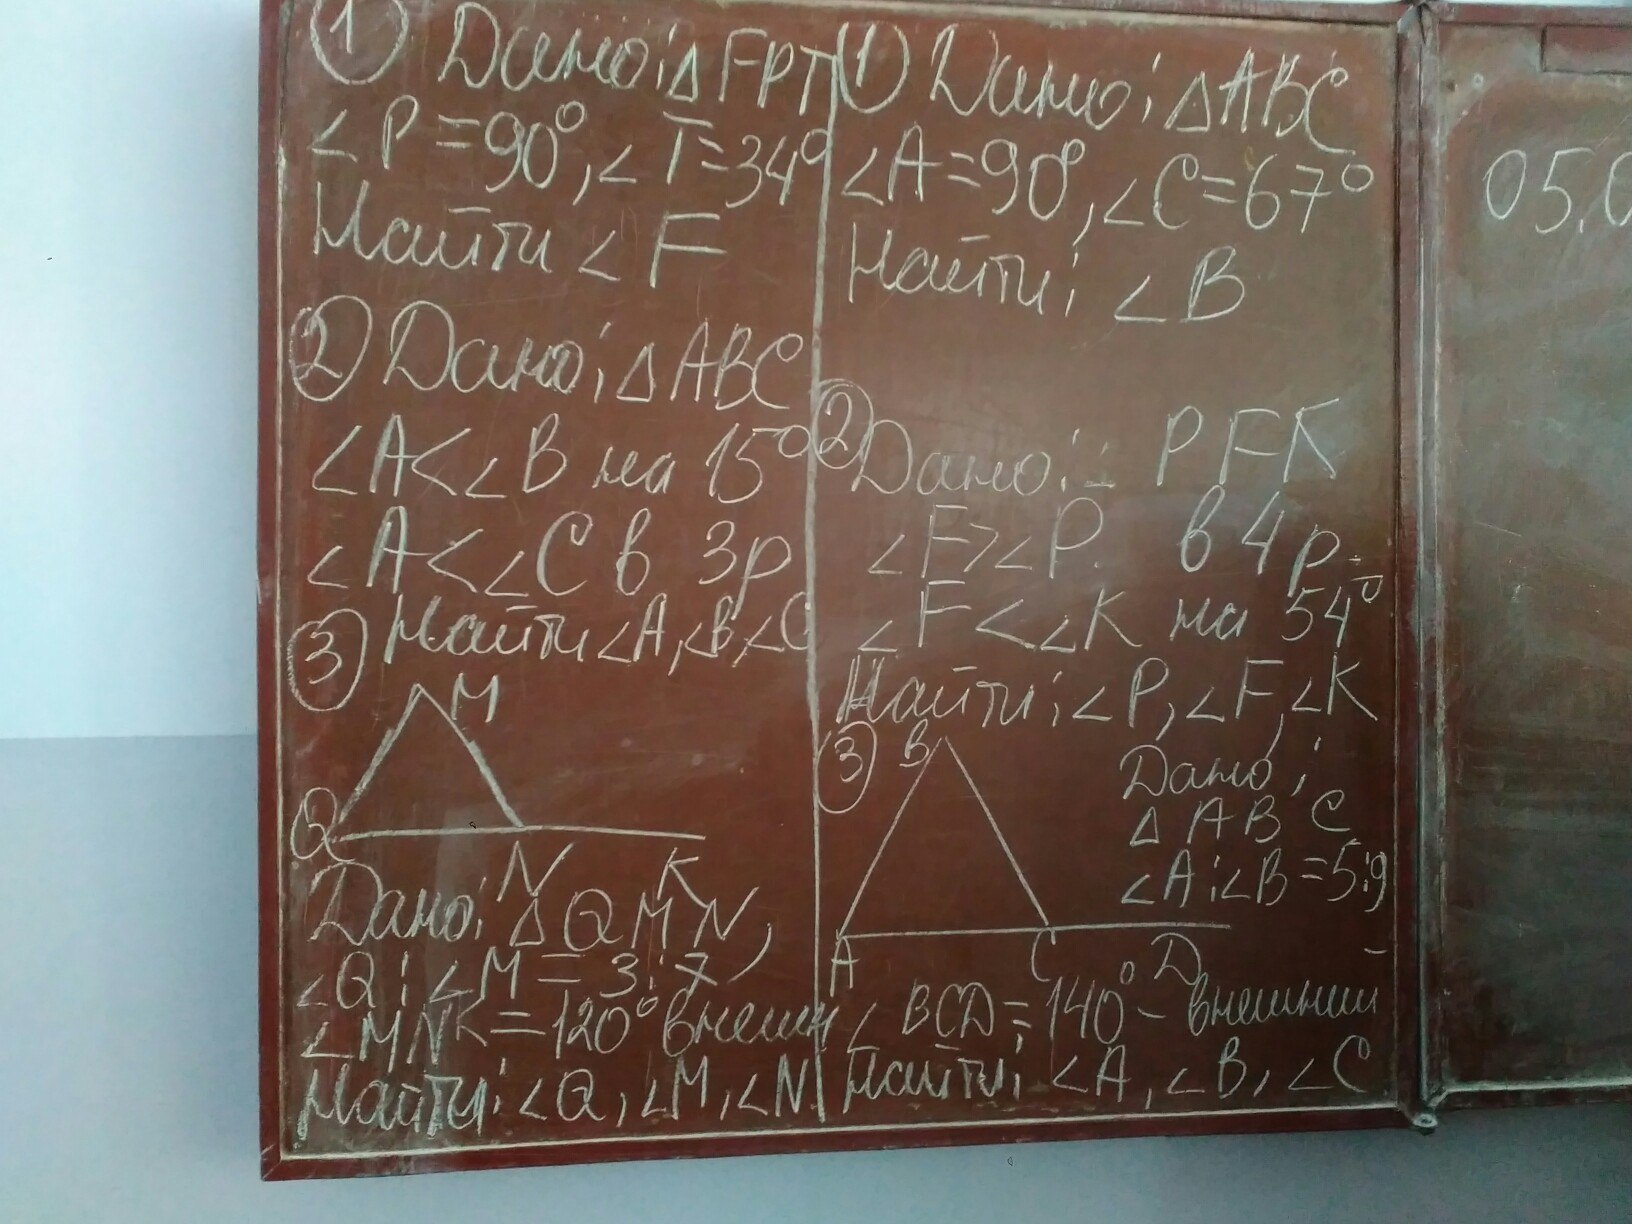 1 Дано: △FPT
∠P=90°, ∠T=34°
Найти ∠F
2 Дано: △ABC
∠A<∠B на 15°
∠A<∠C в 3р
Найти ∠A, ∠B, ∠C
3
M
Q
N K
Дано: △QMN,
∠Q:∠M=3:7,
∠MNK=120° внешн
Найти: ∠Q, ∠M, ∠N
1 Дано: △ABC
∠A=90°, ∠C=67°
Найти: ∠B
2 Дано: PFK
∠F>∠P в 4р.
∠F<∠K на 54°
Найти: ∠P, ∠F, ∠K
3 B
Дано:
△ABC
∠A:∠B=5:9
A C D
∠BCD=140° - внешний
Найти: ∠A, ∠B, ∠C
05.0